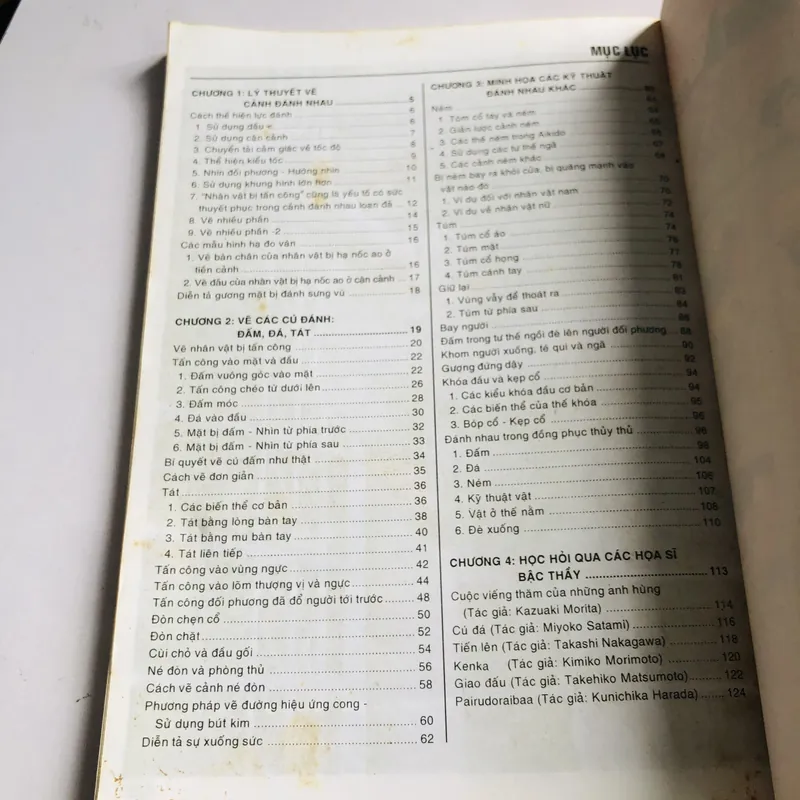 MỤC LỤC
CHƯƠNG 1: LÝ THUYẾT VỀ
CẢNH ĐÁNH NHAU 5
Cách thể hiện lực đánh 6
1. Sử dụng dấu < 6
2. Sử dụng cận cảnh 7
3. Chuyển tải cảm giác về tốc độ 8
4. Thể hiện kiểu tóc 9
5. Nhìn đối phương - Hướng nhìn 10
6. Sử dụng khung hình lớn hơn 11
7. "Nhân vật bị tấn công" cũng là yếu tố có sức
thuyết phục trong cảnh đánh nhau loạn đả 12
8. Vẽ nhiều phần 14
9. Vẽ nhiều phần -2 15
Các mẫu hình hạ đo ván 16
1. Vẽ bàn chân của nhân vật bị hạ nốc ao ở
tiền cảnh 16
2. Vẽ đầu của nhân vật bị hạ nốc ao ở cận cảnh 17
Diễn tả gương mặt bị đánh sưng vù 18
CHƯƠNG 2: VẼ CÁC CÚ ĐÁNH:
ĐẤM, ĐÁ, TÁT 19
Vẽ nhân vật bị tấn công 20
Tấn công vào mặt và đầu 22
1. Đấm vuông góc vào mặt 22
2. Tấn công chéo từ dưới lên 26
3. Đấm móc 28
4. Đá vào đầu 30
5. Mặt bị đấm - Nhìn từ phía trước 32
6. Mặt bị đấm - Nhìn từ phía sau 33
Bí quyết vẽ cú đấm như thật 34
Cách vẽ đơn giản 35
Tát 36
1. Các biến thể cơ bản 36
2. Tát bằng lòng bàn tay 38
3. Tát bằng mu bàn tay 40
4. Tát liên tiếp 41
Tấn công vào vùng ngực 42
Tấn công vào lõm thượng vị và ngực 44
Tấn công đối phương đã đổ người tới trước 48
Đòn chẹn cổ 50
Đòn chặt 52
Cùi chỏ và đầu gối 54
Né đòn và phòng thủ 56
Cách vẽ cảnh né đòn 58
Phương pháp vẽ đường hiệu ứng cong -
Sử dụng bút kim 60
Diễn tả sự xuống sức 62
CHƯƠNG 3: MINH HỌA CÁC KỸ THUẬT
ĐÁNH NHAU KHÁC
Ném
1. Tóm cổ tay và ném
2. Giản lược cảnh ném
3. Các thế ném trong Aikido
4. Sử dụng các tư thế ngã
5. Các cảnh ném khác 68
Bị ném bay ra khỏi cửa, bị quăng mạnh vào
vật nào đó 70
1. Ví dụ đối với nhân vật nam 70
2. Ví dụ về nhân vật nữ 72
Túm 74
1. Túm cổ áo 74
2. Túm mặt 76
3. Túm cổ họng 77
4. Túm cánh tay 79
Giữ lại 81
1. Vùng vẫy để thoát ra 83
2. Túm từ phía sau 84
Bay người 86
Đấm trong tư thế ngồi đè lên người đối phương 88
Khom người xuống, té quị và ngã 90
Gượng đứng dậy 92
Khóa đầu và kẹp cổ 94
1. Các kiểu khóa đầu cơ bản 94
2. Các biến thể của thế khóa 95
3. Bóp cổ - Kẹp cổ 96
Đánh nhau trong đồng phục thủy thủ 98
1. Đấm 98
2. Đá 104
3. Ném 106
4. Kỹ thuật vật 107
5. Vật ở thế nằm 108
6. Đè xuống 110
CHƯƠNG 4: HỌC HỎI QUA CÁC HỌA SĨ
BẬC THẦY 113
Cuộc viếng thăm của những anh hùng
(Tác giả: Kazuaki Morita) 114
Cú đá (Tác giả: Miyoko Satami) 116
Tiến lên (Tác giả: Takashi Nakagawa) 118
Kenka (Tác giả: Kimiko Morimoto) 120
Giao đấu (Tác giả: Takehiko Matsumoto) 122
Pairudoraibaa (Tác giả: Kunichika Harada) 124